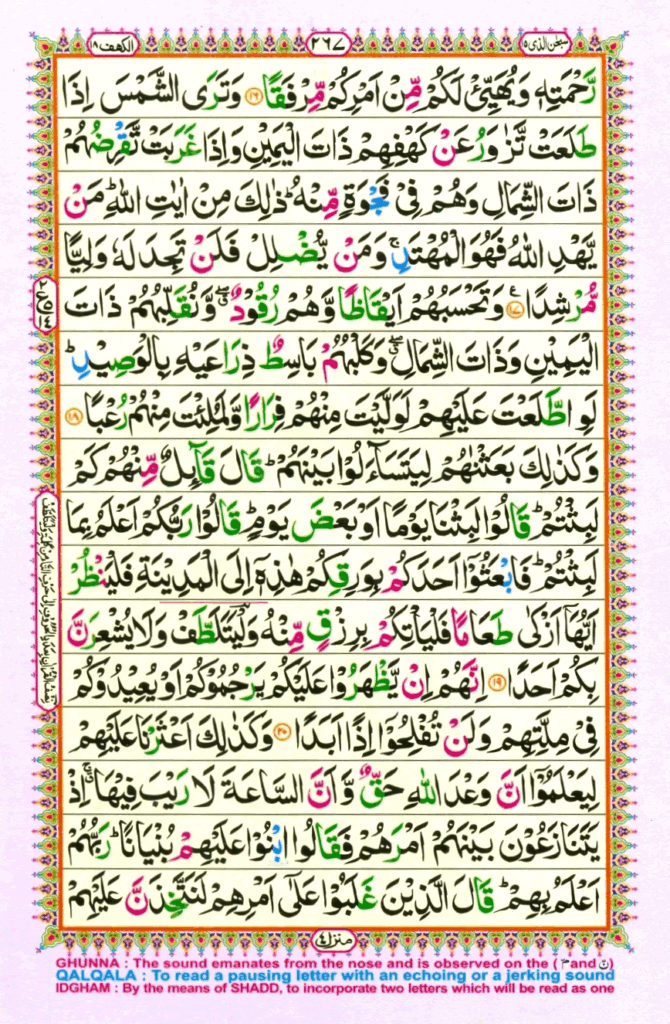 سبحٰن الذی ۱۵
۲۶۷
الکھف ۱۸
رَّحْمَتِهٖ وَيُهَيِّئْ لَكُمْ مِّنْ اَمْرِكُمْ مِّرْفَقًا ۝۱۶ وَتَرَى الشَّمْسَ اِذَا
طَلَعَتْ تَّزٰوَرُ عَنْ كَهْفِهِمْ ذَاتَ الْيَمِيْنِ وَاِذَا غَرَبَتْ تَّقْرِضُهُمْ
ذَاتَ الشِّمَالِ وَهُمْ فِيْ فَجْوَةٍ مِّنْهُ ؕ ذٰلِكَ مِنْ اٰيٰتِ اللّٰهِ ؕ مَنْ
يَّهْدِ اللّٰهُ فَهُوَ الْمُهْتَدِ ۚ وَمَنْ يُّضْلِلْ فَلَنْ تَجِدَ لَهٗ وَلِيًّا
مُّرْشِدًا ۝۱۷ وَتَحْسَبُهُمْ اَيْقَاظًا وَّهُمْ رُقُوْدٌ ۖۗ وَّنُقَلِّبُهُمْ ذَاتَ
الْيَمِيْنِ وَذَاتَ الشِّمَالِ ۖۗ وَكَلْبُهُمْ بَاسِطٌ ذِرَاعَيْهِ بِالْوَصِيْدِ ؕ
لَوِ اطَّلَعْتَ عَلَيْهِمْ لَوَلَّيْتَ مِنْهُمْ فِرَارًا وَّلَمُلِئْتَ مِنْهُمْ رُعْبًا ۝۱۸
وَكَذٰلِكَ بَعَثْنٰهُمْ لِيَتَسَآءَلُوْا بَيْنَهُمْ ؕ قَالَ قَآىِٕلٌ مِّنْهُمْ كَمْ
لَبِثْتُمْ ؕ قَالُوْا لَبِثْنَا يَوْمًا اَوْ بَعْضَ يَوْمٍ ؕ قَالُوْا رَبُّكُمْ اَعْلَمُ بِمَا
لَبِثْتُمْ ؕ فَابْعَثُوْۤا اَحَدَكُمْ بِوَرِقِكُمْ هٰذِهٖۤ اِلَى الْمَدِيْنَةِ فَلْيَنْظُرْ
اَيُّهَاۤ اَزْكٰى طَعَامًا فَلْيَاْتِكُمْ بِرِزْقٍ مِّنْهُ وَلْيَتَلَطَّفْ وَلَا يُشْعِرَنَّ
بِكُمْ اَحَدًا ۝۱۹ اِنَّهُمْ اِنْ يَّظْهَرُوْا عَلَيْكُمْ يَرْجُمُوْكُمْ اَوْ يُعِيْدُوْكُمْ
فِيْ مِلَّتِهِمْ وَلَنْ تُفْلِحُوْۤا اِذًا اَبَدًا ۝۲۰ وَكَذٰلِكَ اَعْثَرْنَا عَلَيْهِمْ
لِيَعْلَمُوْۤا اَنَّ وَعْدَ اللّٰهِ حَقٌّ وَّاَنَّ السَّاعَةَ لَا رَيْبَ فِيْهَا ۚۗ اِذْ
يَتَنَازَعُوْنَ بَيْنَهُمْ اَمْرَهُمْ فَقَالُوا ابْنُوْا عَلَيْهِمْ بُنْيَانًا ؕ رَبُّهُمْ
اَعْلَمُ بِهِمْ ؕ قَالَ الَّذِيْنَ غَلَبُوْا عَلٰۤى اَمْرِهِمْ لَنَتَّخِذَنَّ عَلَيْهِمْ
منزل ٤
GHUNNA : The sound emanates from the nose and is observed on the ( مّ and نّ)
QALQALA : To read a pausing letter with an echoing or a jerking sound
IDGHAM : By the means of SHADD, to incorporate two letters which will be read as one